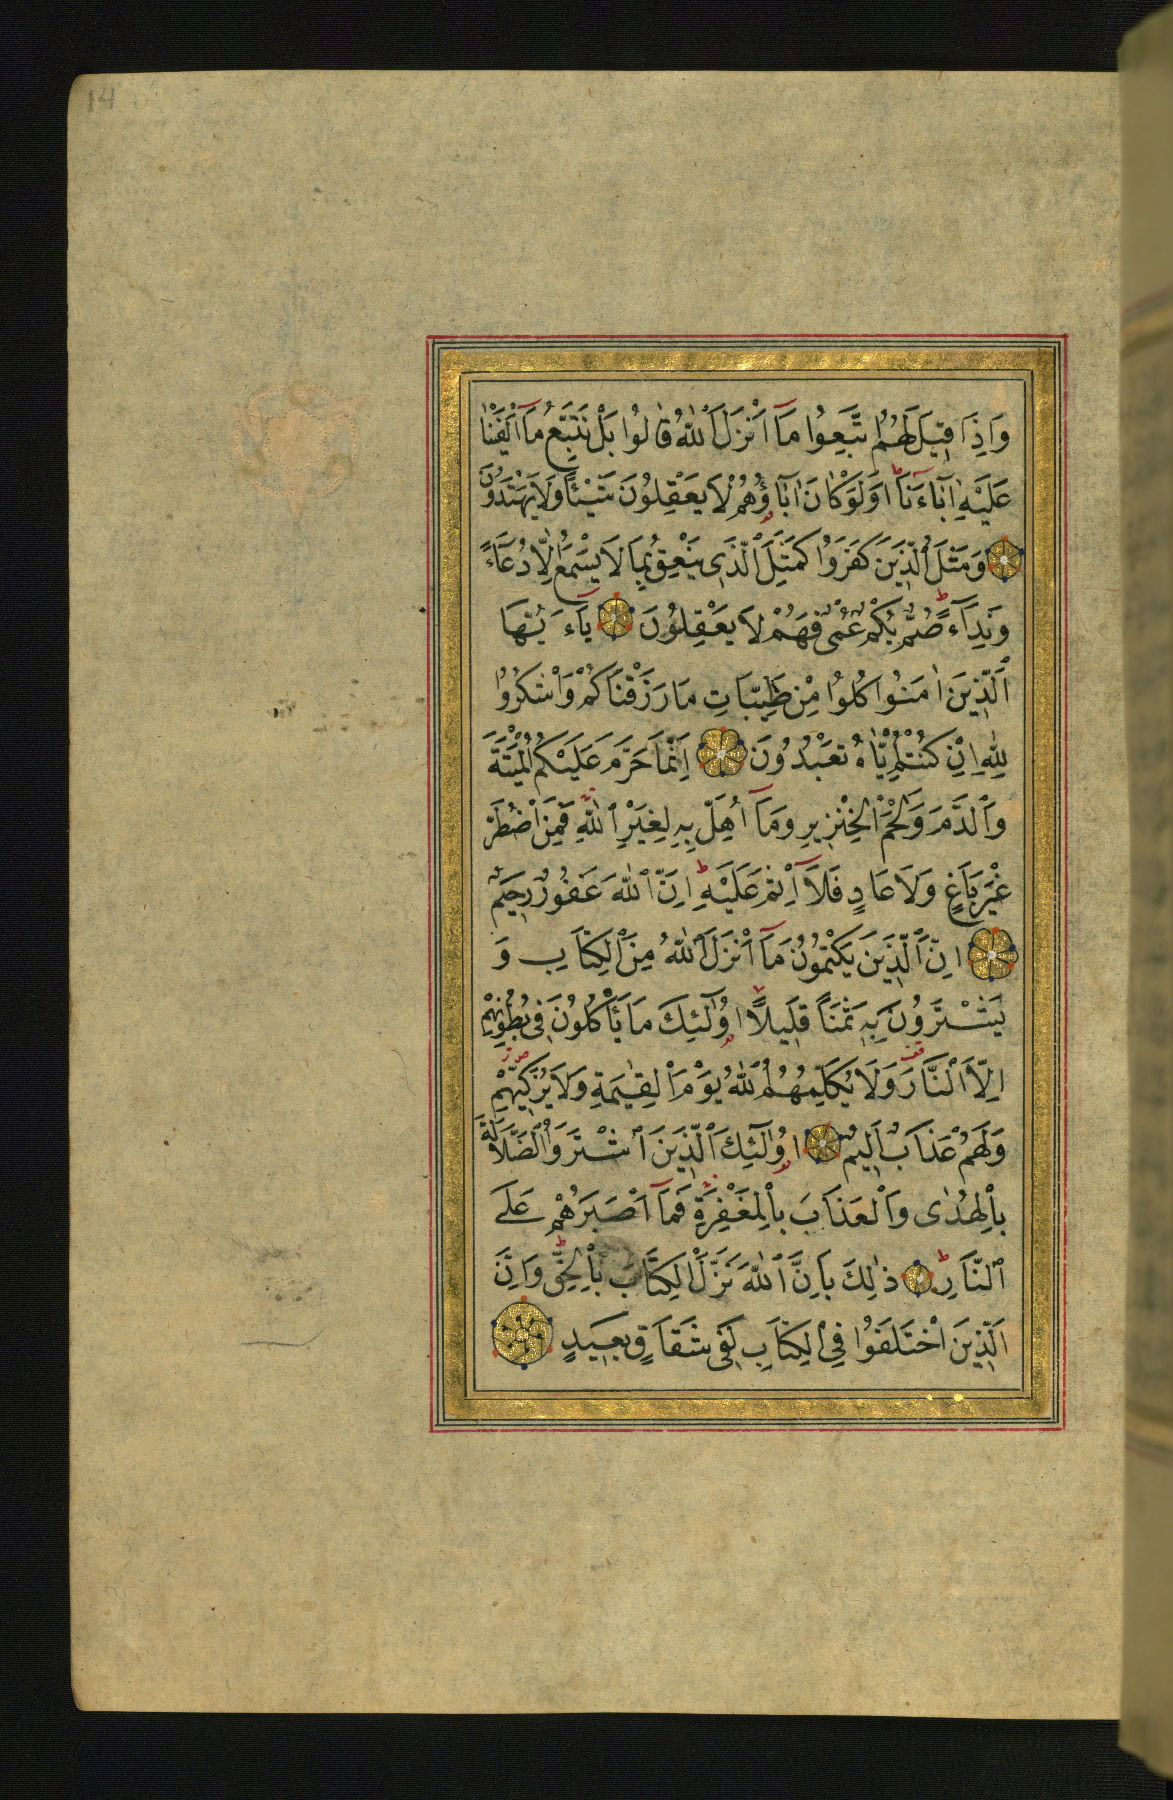 14
وَاِذَا قِيلَ لَهُمُ اتَّبِعُوا مَآ اَنْزَلَ اللّٰهُ قَالُوا بَلْ نَتَّبِعُ مَآ اَلْفَيْنَا
عَلَيْهِ اٰبَآءَنَا اَوَلَوْ كَانَ اٰبَاؤُهُمْ لَا يَعْقِلُونَ شَيْئًا وَلَا يَهْتَدُونَ
وَمَثَلُ الَّذِينَ كَفَرُوا كَمَثَلِ الَّذِى يَنْعِقُ بِمَا لَا يَسْمَعُ اِلَّا دُعَآءً
وَنِدَآءً صُمٌّ بُكْمٌ عُمْىٌ فَهُمْ لَا يَعْقِلُونَ يَآءَ يُّهَا
الَّذِينَ اٰمَنُوا كُلُوا مِنْ طَيِّبَاتِ مَا رَزَقْنَاكُمْ وَاشْكُرُوا
لِلّٰهِ اِنْ كُنْتُمْ اِيَّاهُ تَعْبُدُونَ اِنَّمَا حَرَّمَ عَلَيْكُمُ الْمَيْتَةَ
وَالدَّمَ وَلَحْمَ الْخِنْزِيرِ وَمَآ اُهِلَّ بِهِ لِغَيْرِ اللّٰهِ فَمَنِ اضْطُرَّ
غَيْرَ بَاغٍ وَلَا عَادٍ فَلَآ اِثْمَ عَلَيْهِ اِنَّ اللّٰهَ غَفُورٌ رَحِيمٌ
اِنَّ الَّذِينَ يَكْتُمُونَ مَآ اَنْزَلَ اللّٰهُ مِنَ الْكِتَابِ وَ
يَشْتَرُونَ بِهِ ثَمَنًا قَلِيلًا اُولٰٓئِكَ مَا يَأْكُلُونَ فِى بُطُونِهِمْ
اِلَّا النَّارَ وَلَا يُكَلِّمُهُمُ اللّٰهُ يَوْمَ الْقِيٰمَةِ وَلَا يُزَكِّيهِمْ
وَلَهُمْ عَذَابٌ اَلِيمٌ اُولٰٓئِكَ الَّذِينَ اشْتَرَوُا الضَّلَالَةَ
بِالْهُدٰى وَالْعَذَابَ بِالْمَغْفِرَةِ فَمَآ اَصْبَرَهُمْ عَلَى
النَّارِ ذٰلِكَ بِاَنَّ اللّٰهَ نَزَّلَ الْكِتَابَ بِالْحَقِّ وَاِنَّ
الَّذِينَ اخْتَلَفُوا فِى الْكِتَابِ لَفِى شِقَاقٍ بَعِيدٍ